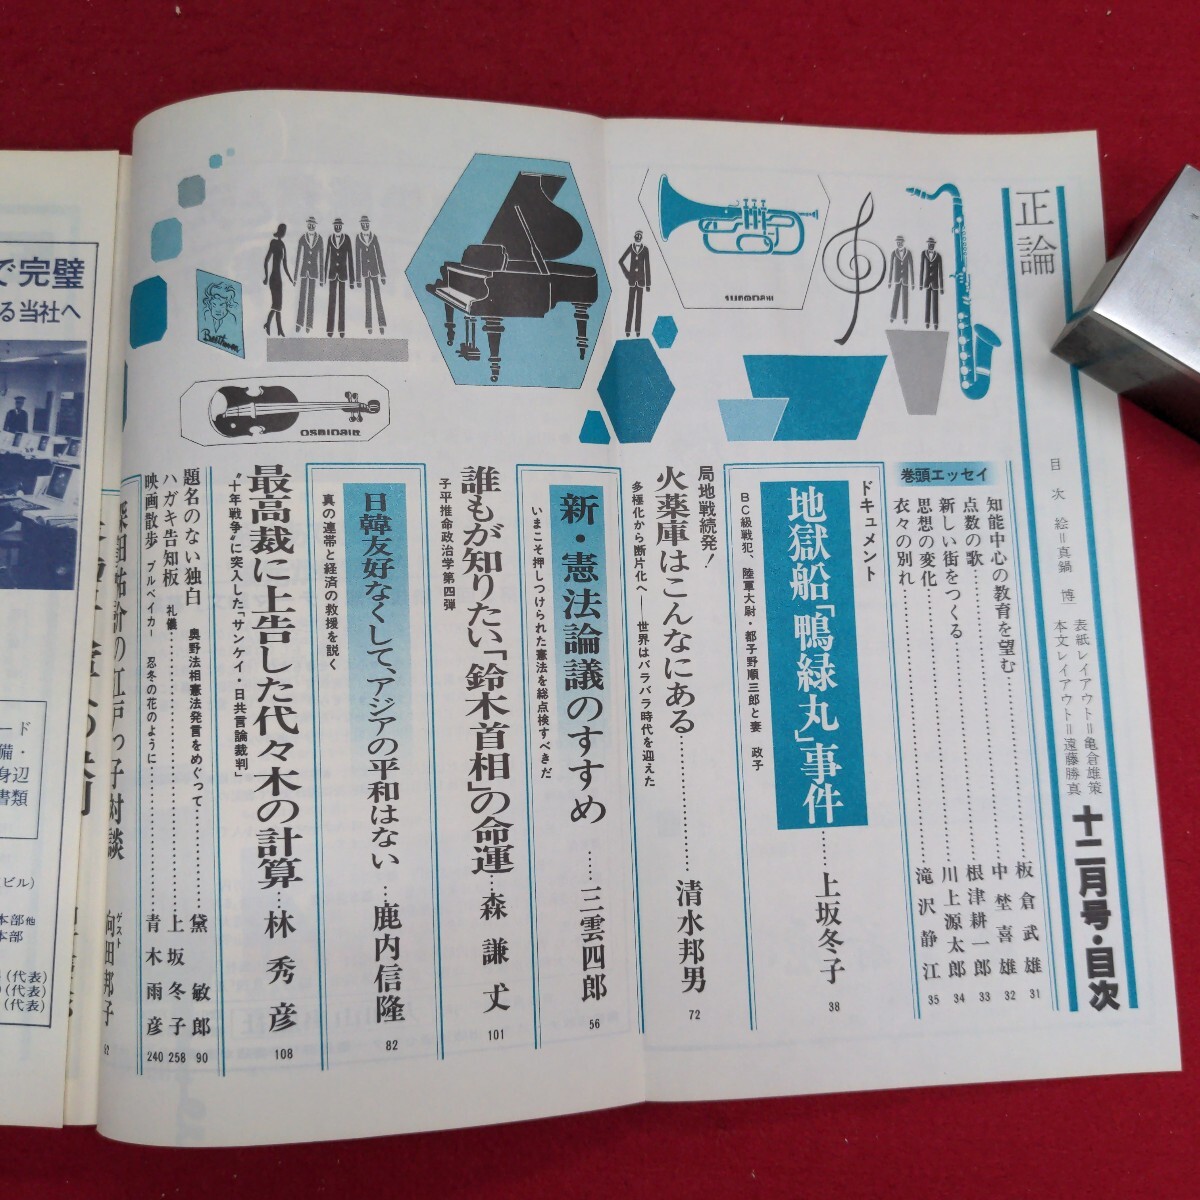 正論
十二月号・目次
目次 絵=真鍋 博
表紙レイアウト=亀倉雄策
本文レイアウト=遠藤勝真
巻頭エッセイ
知能中心の教育を望む……板倉武雄 31
点数の歌……中埜喜雄 32
新しい街をつくる……根津耕一郎 33
思想の変化……川上源太郎 34
衣々の別れ……滝沢静江 35
ドキュメント
地獄船「鴨緑丸」事件……上坂冬子 38
BC級戦犯、陸軍大尉・都子野順三郎と妻 政子
局地戦続発!
火薬庫はこんなにある……清水邦男 72
多極化から断片化へ 世界はバラバラ時代を迎えた
新・憲法論議のすすめ……三雲四郎 56
いまこそ押しつけられた憲法を総点検すべきだ
誰もが知りたい「鈴木首相」の命運…森 謙丈 101
子平推命政治学第四弾
日韓友好なくして、アジアの平和はない…鹿内信隆 82
真の連帯と経済の救援を説く
最高裁に上告した代々木の計算…林 秀彦 108
“十年戦争”に突入した「サンケイ・日共言論裁判」
題名のない独白 奥野法相憲法発言をめぐって……黛 敏郎 90
ハガキ告知板 礼儀……上坂冬子 258
映画散歩 ブルベイカー 忍冬の花のように……青木雨彦 240
深田祐介の江戸っ子対談 ゲスト 向田邦子
Beethoven
で完璧
る当社へ
ード
備・
身辺
書類
ビル)
本部他
本部
(代表)
(代表)
(代表)